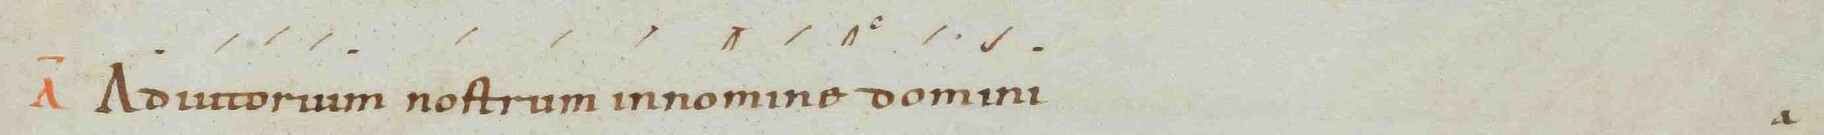 Ā Adiutorium nostrum innomine domini
a